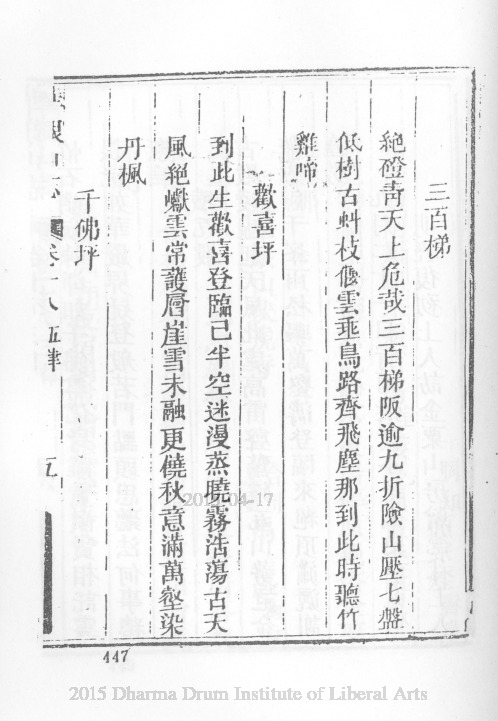 三百梯
絕磴靑天上危哉三百梯阪逾九折險山壓七盤
低樹古蚪枝偃雲垂鳥路齊飛塵那到此時聽竹
雞啼
歡喜坪
到此生歡喜登臨已半空迷漫蒸曉霧浩蕩古天
風絕巘雲常護層崖雪未融更饒秋意滿萬壑染
丹楓
千佛坪
卷八 五律 五
447
2015-04-17
2015 Dharma Drum Institute of Liberal Arts